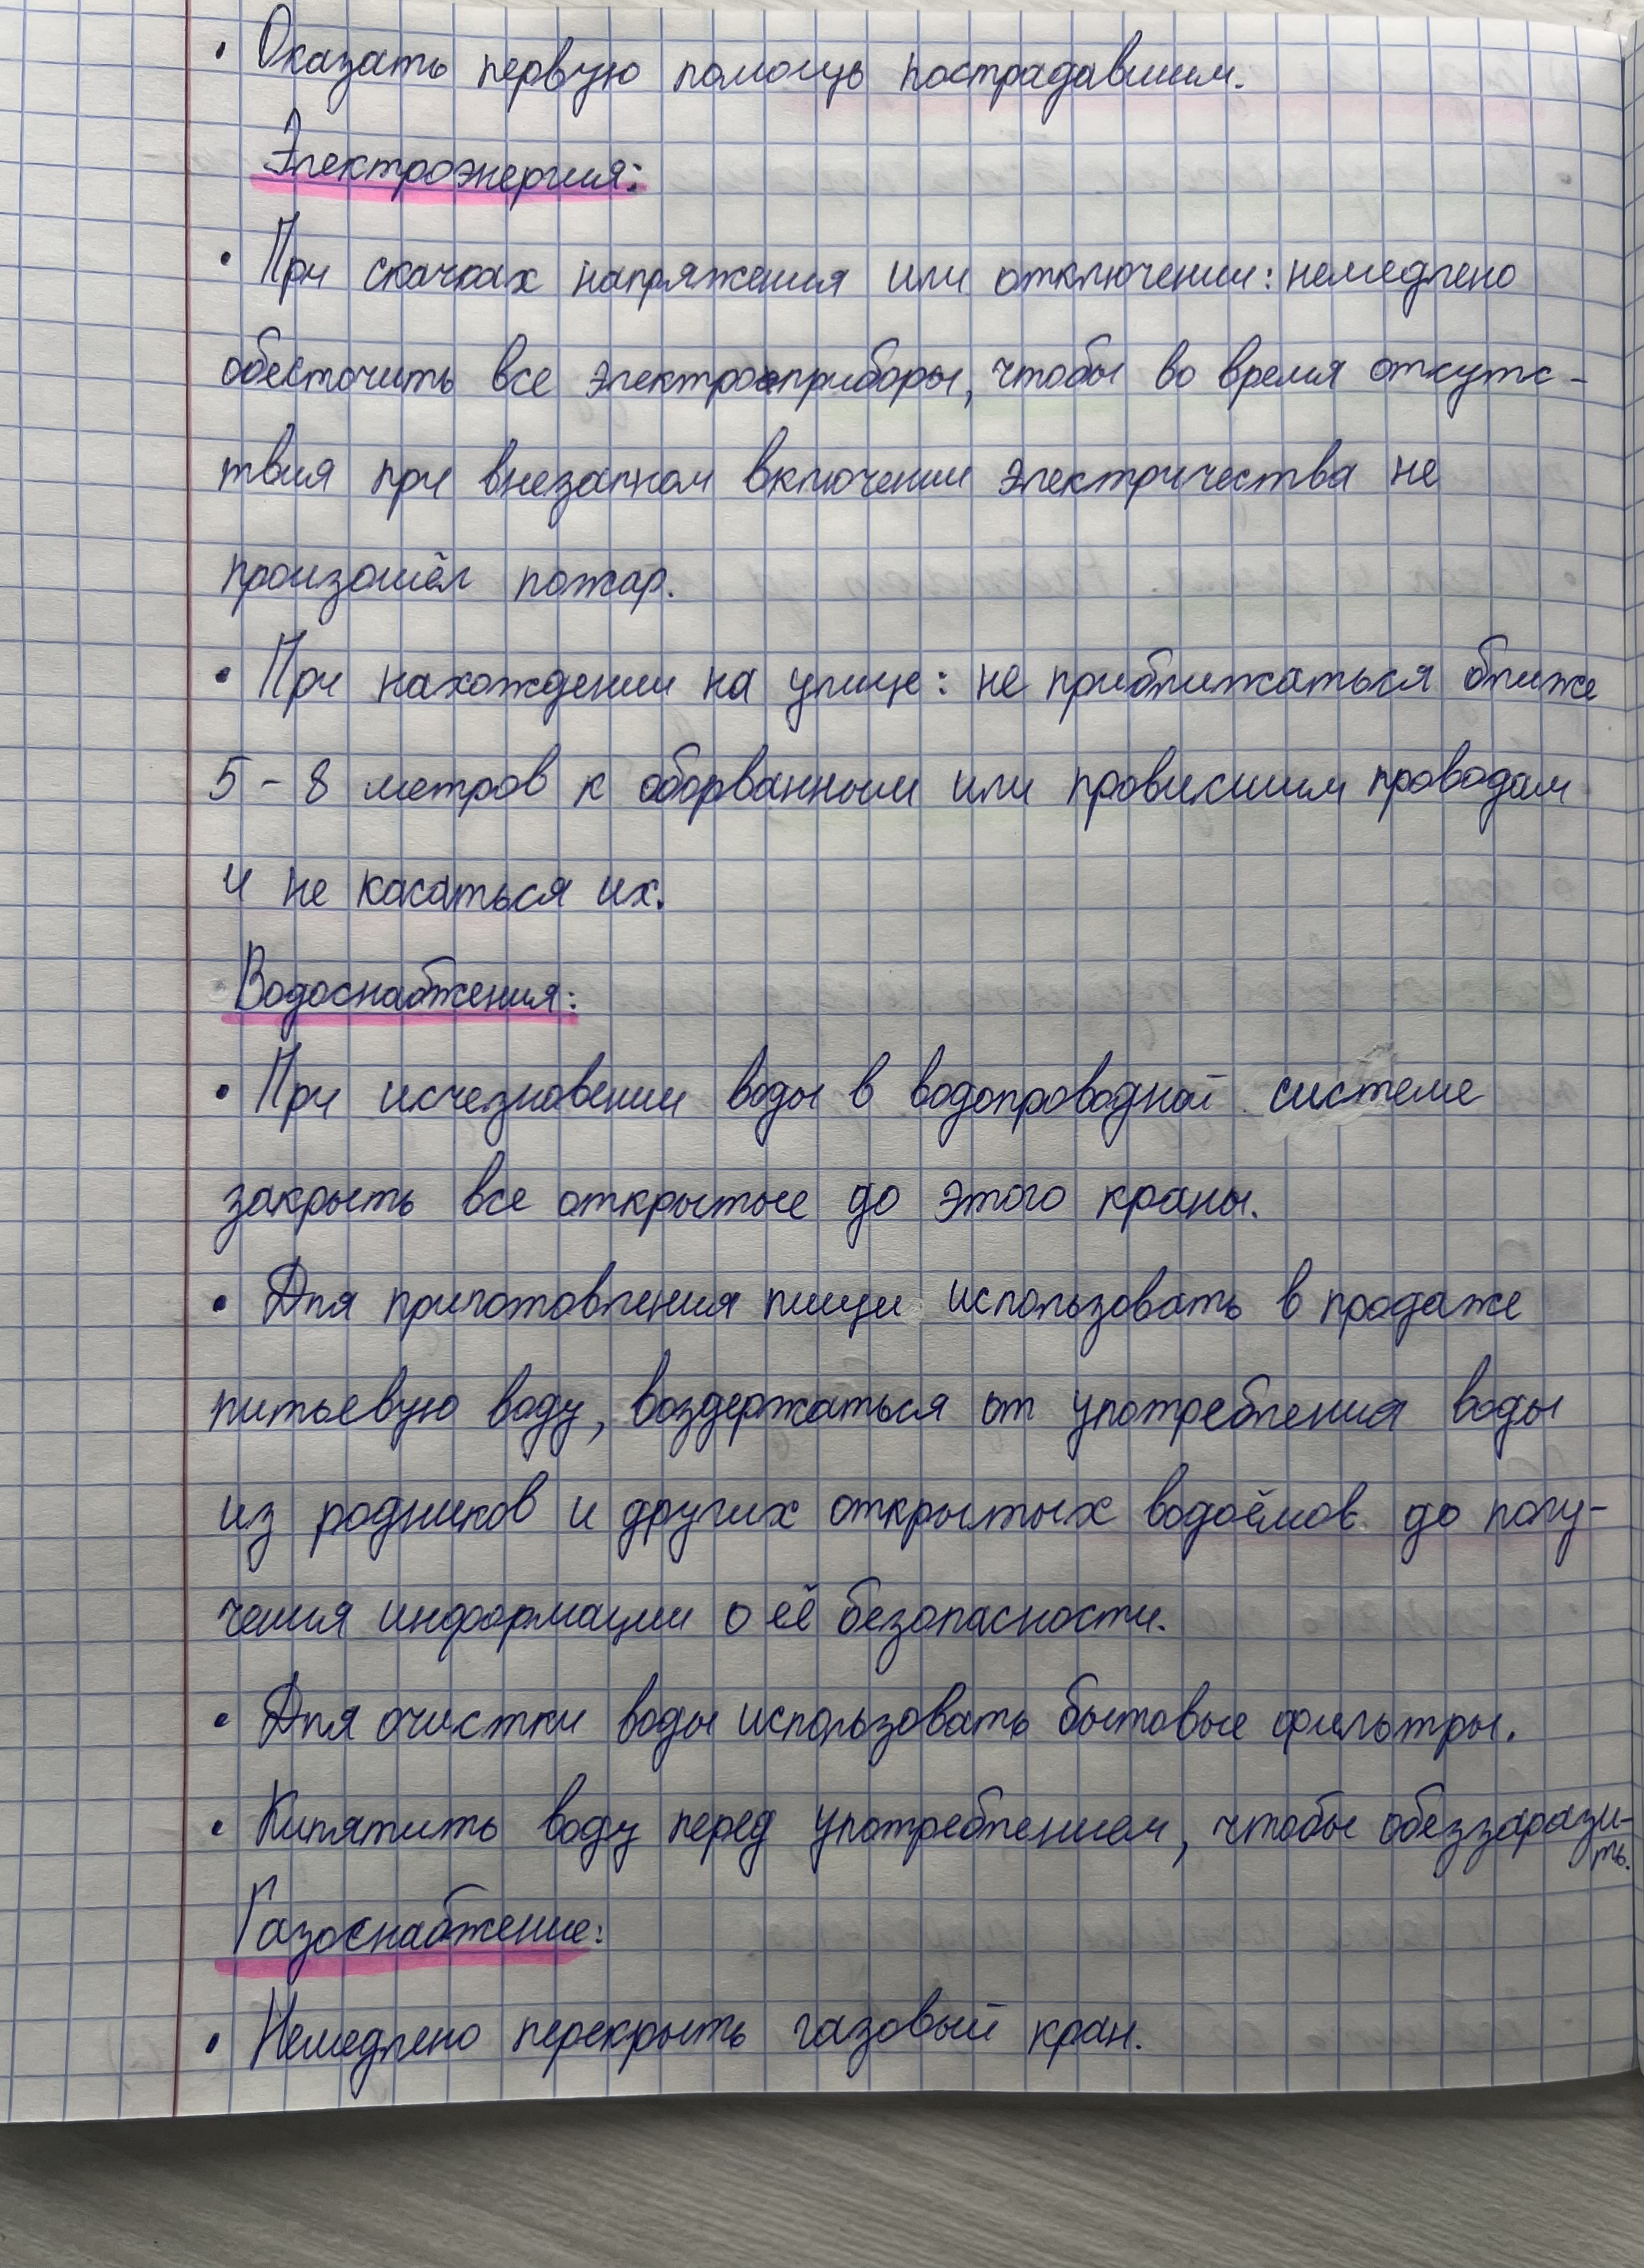 • Оказать первую помощь пострадавшим.
Электроэнергия:
• При скачках напряжения или отключении: немедлено
обесточить все электроприборы, чтобы во время отсутс-
твия при внезапном включении электричества не
произошёл пожар.
• При нахождении на улице: не приближаться ближе
5 - 8 метров к оборванным или провисшим проводам
и не касаться их.
Водоснабжения:
• При исчезновении воды в водопроводной системе
закрыть все открытые до этого краны.
• Для приготовления пищи использовать в продаже
питьевую воду, воздержаться от употребления воды
из родников и других открытых водоёмов до полу-
чения информации о её безопасности.
• Для очистки воды использовать бытовые фильтры.
• Кипятить воду перед употреблением, чтобы обеззарази-
ть.
Газоснабжение:
• Немедлено перекрыть газовый кран.